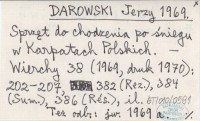 DAROWSKI Jerzy 1969.
Sprzęt do chodzenia po śniegu
w Karpatach Polskich. —
Wierchy 38 (1969, druk 1970):
202-207, 382 (Rez.), 384
(Sum.), 386 (Rés.), il.
Też odb.: jw. 1969 a.